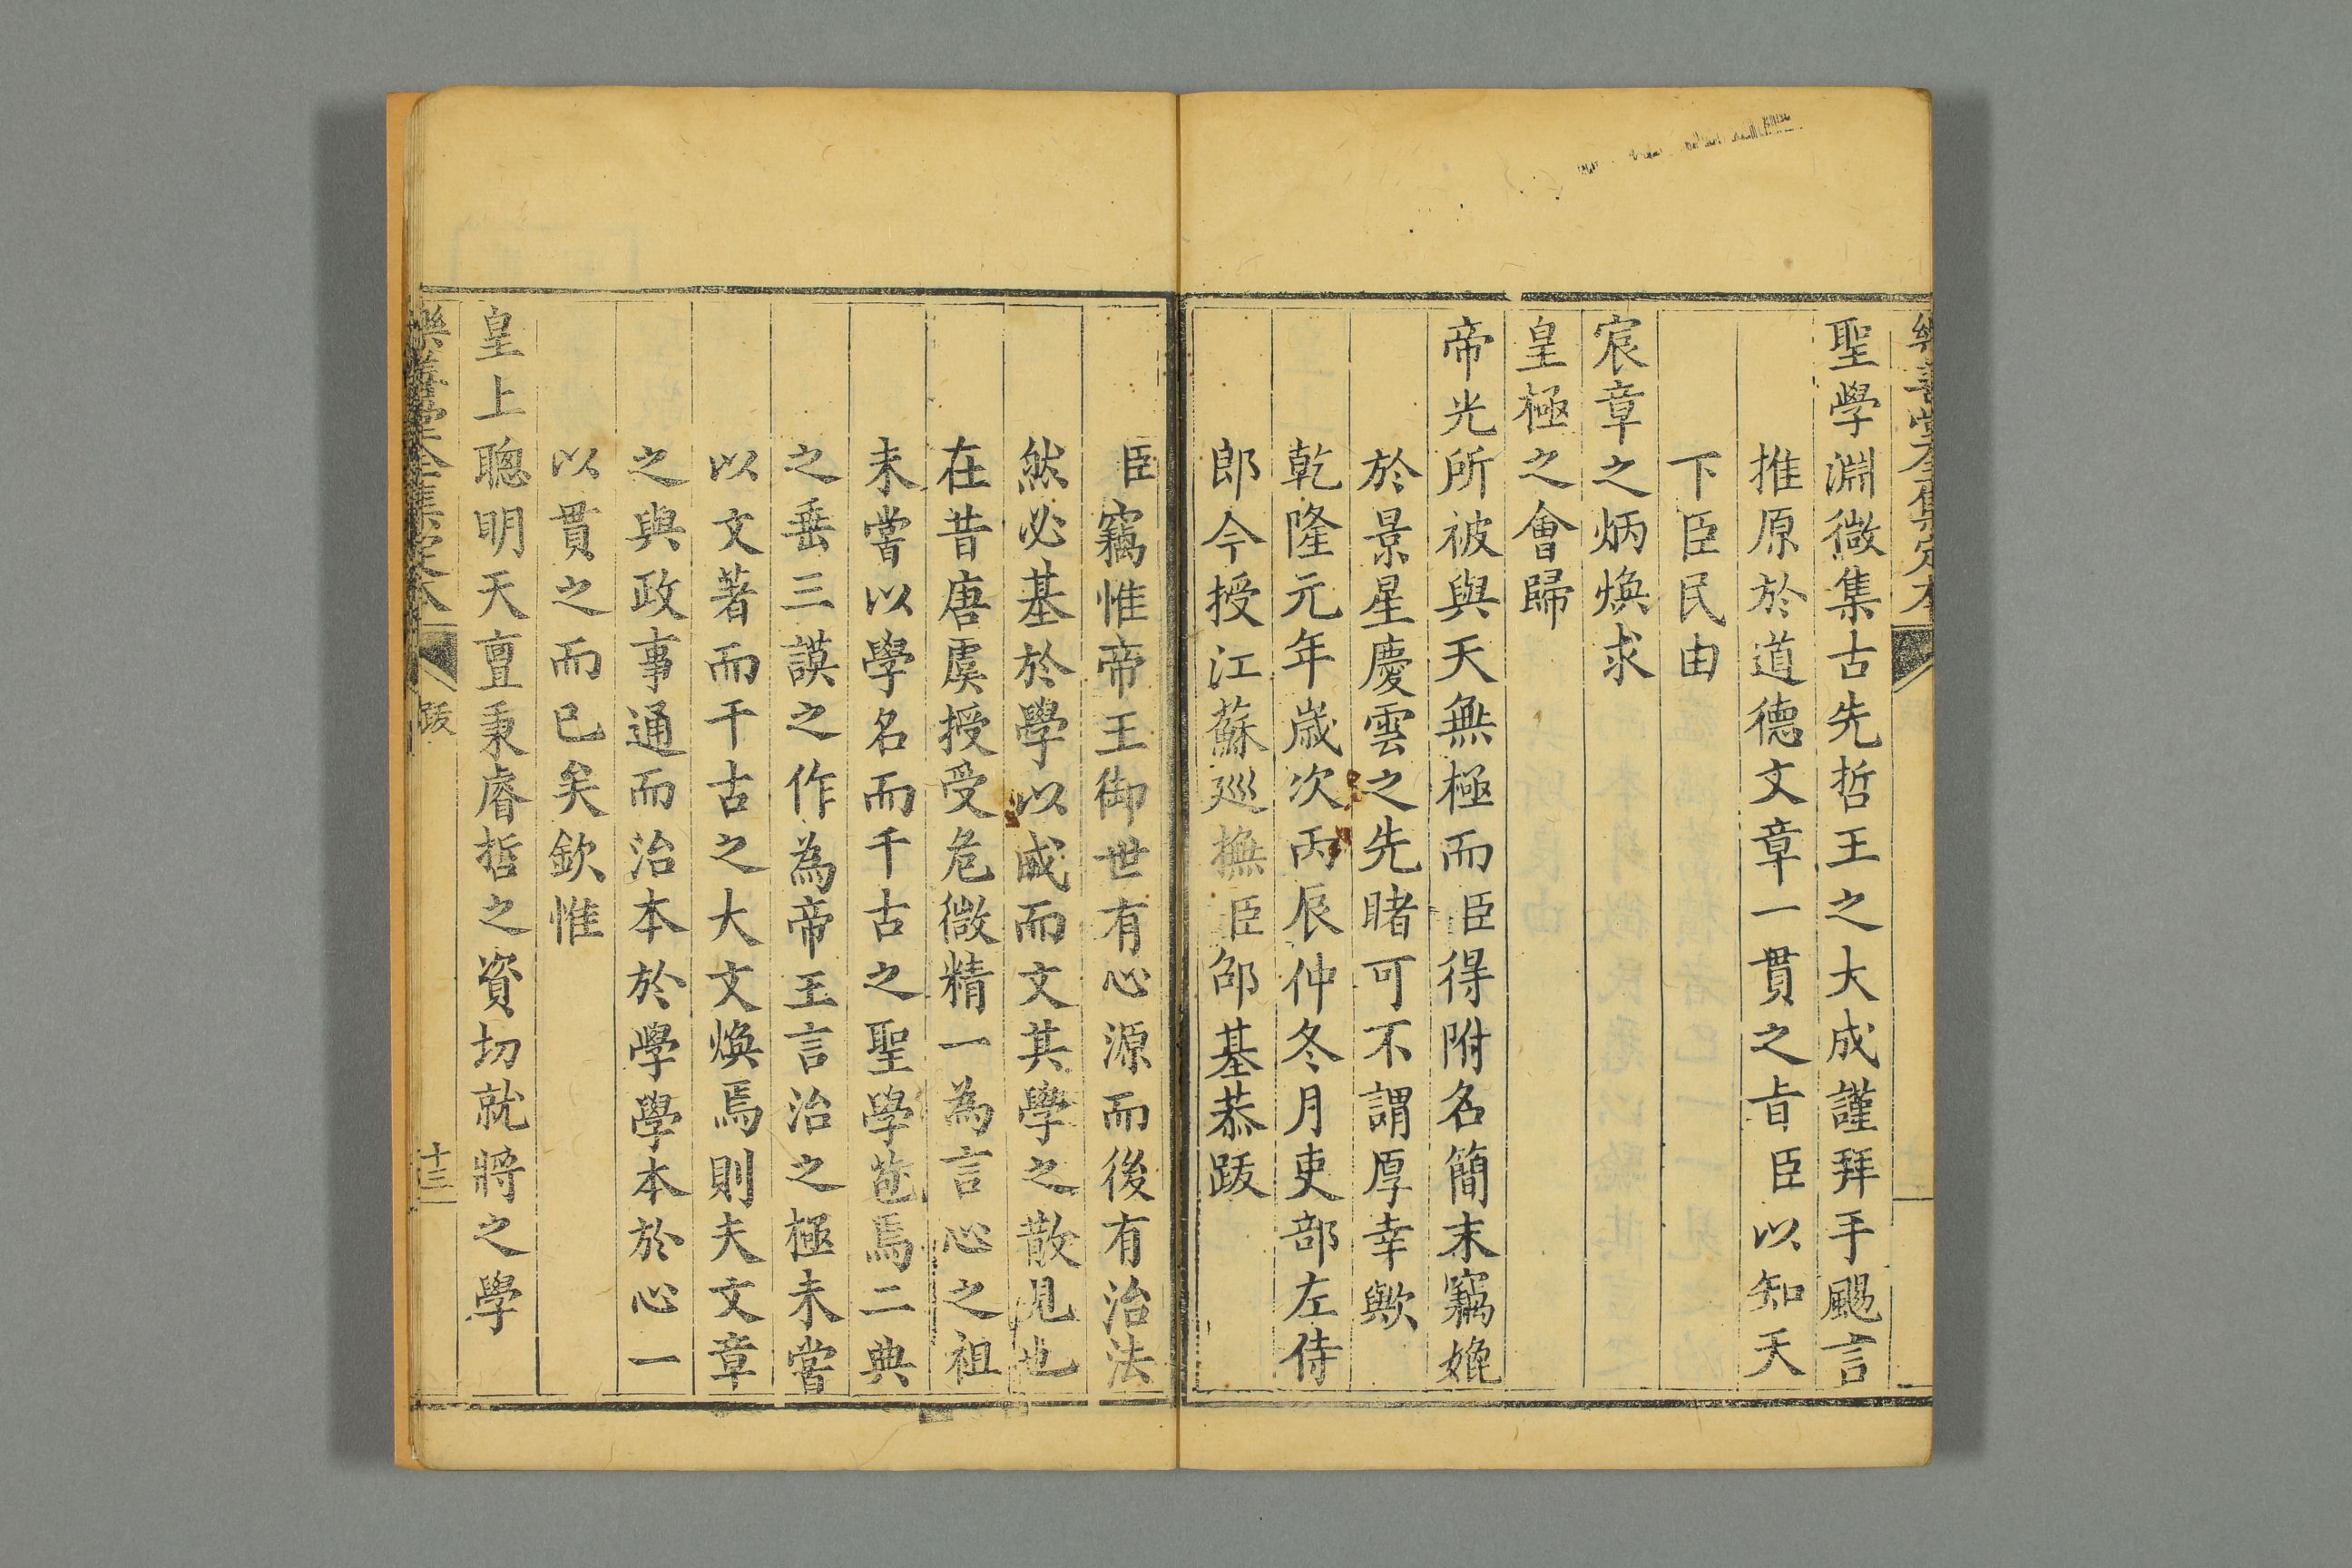 樂善堂全集定本
聖學淵微集古先哲王之大成謹拜手颺言
推原於道德文章一貫之旨臣以知天
下臣民由
宸章之炳煥求
皇極之會歸
帝光所被與天無極而臣得附名簡末竊娩
於景星慶雲之先睹可不謂厚幸歟
乾隆元年歲次丙辰仲冬月吏部左侍
郎今授江蘇廵撫臣邵基恭跋
臣竊惟帝王御世有心源而後有治法
然必基於學以成而文其學之散見也
在昔唐虞授受危微精一為言心之祖
未嘗以學名而千古之聖學苞焉二典
之垂三謨之作為帝王言治之極未嘗
以文著而千古之大文煥焉則夫文章
之與政事通而治本於學學本於心一
以貫之而已矣欽惟
皇上聰明天亶秉睿哲之資切就將之學
樂善堂全集定本 跋 十三